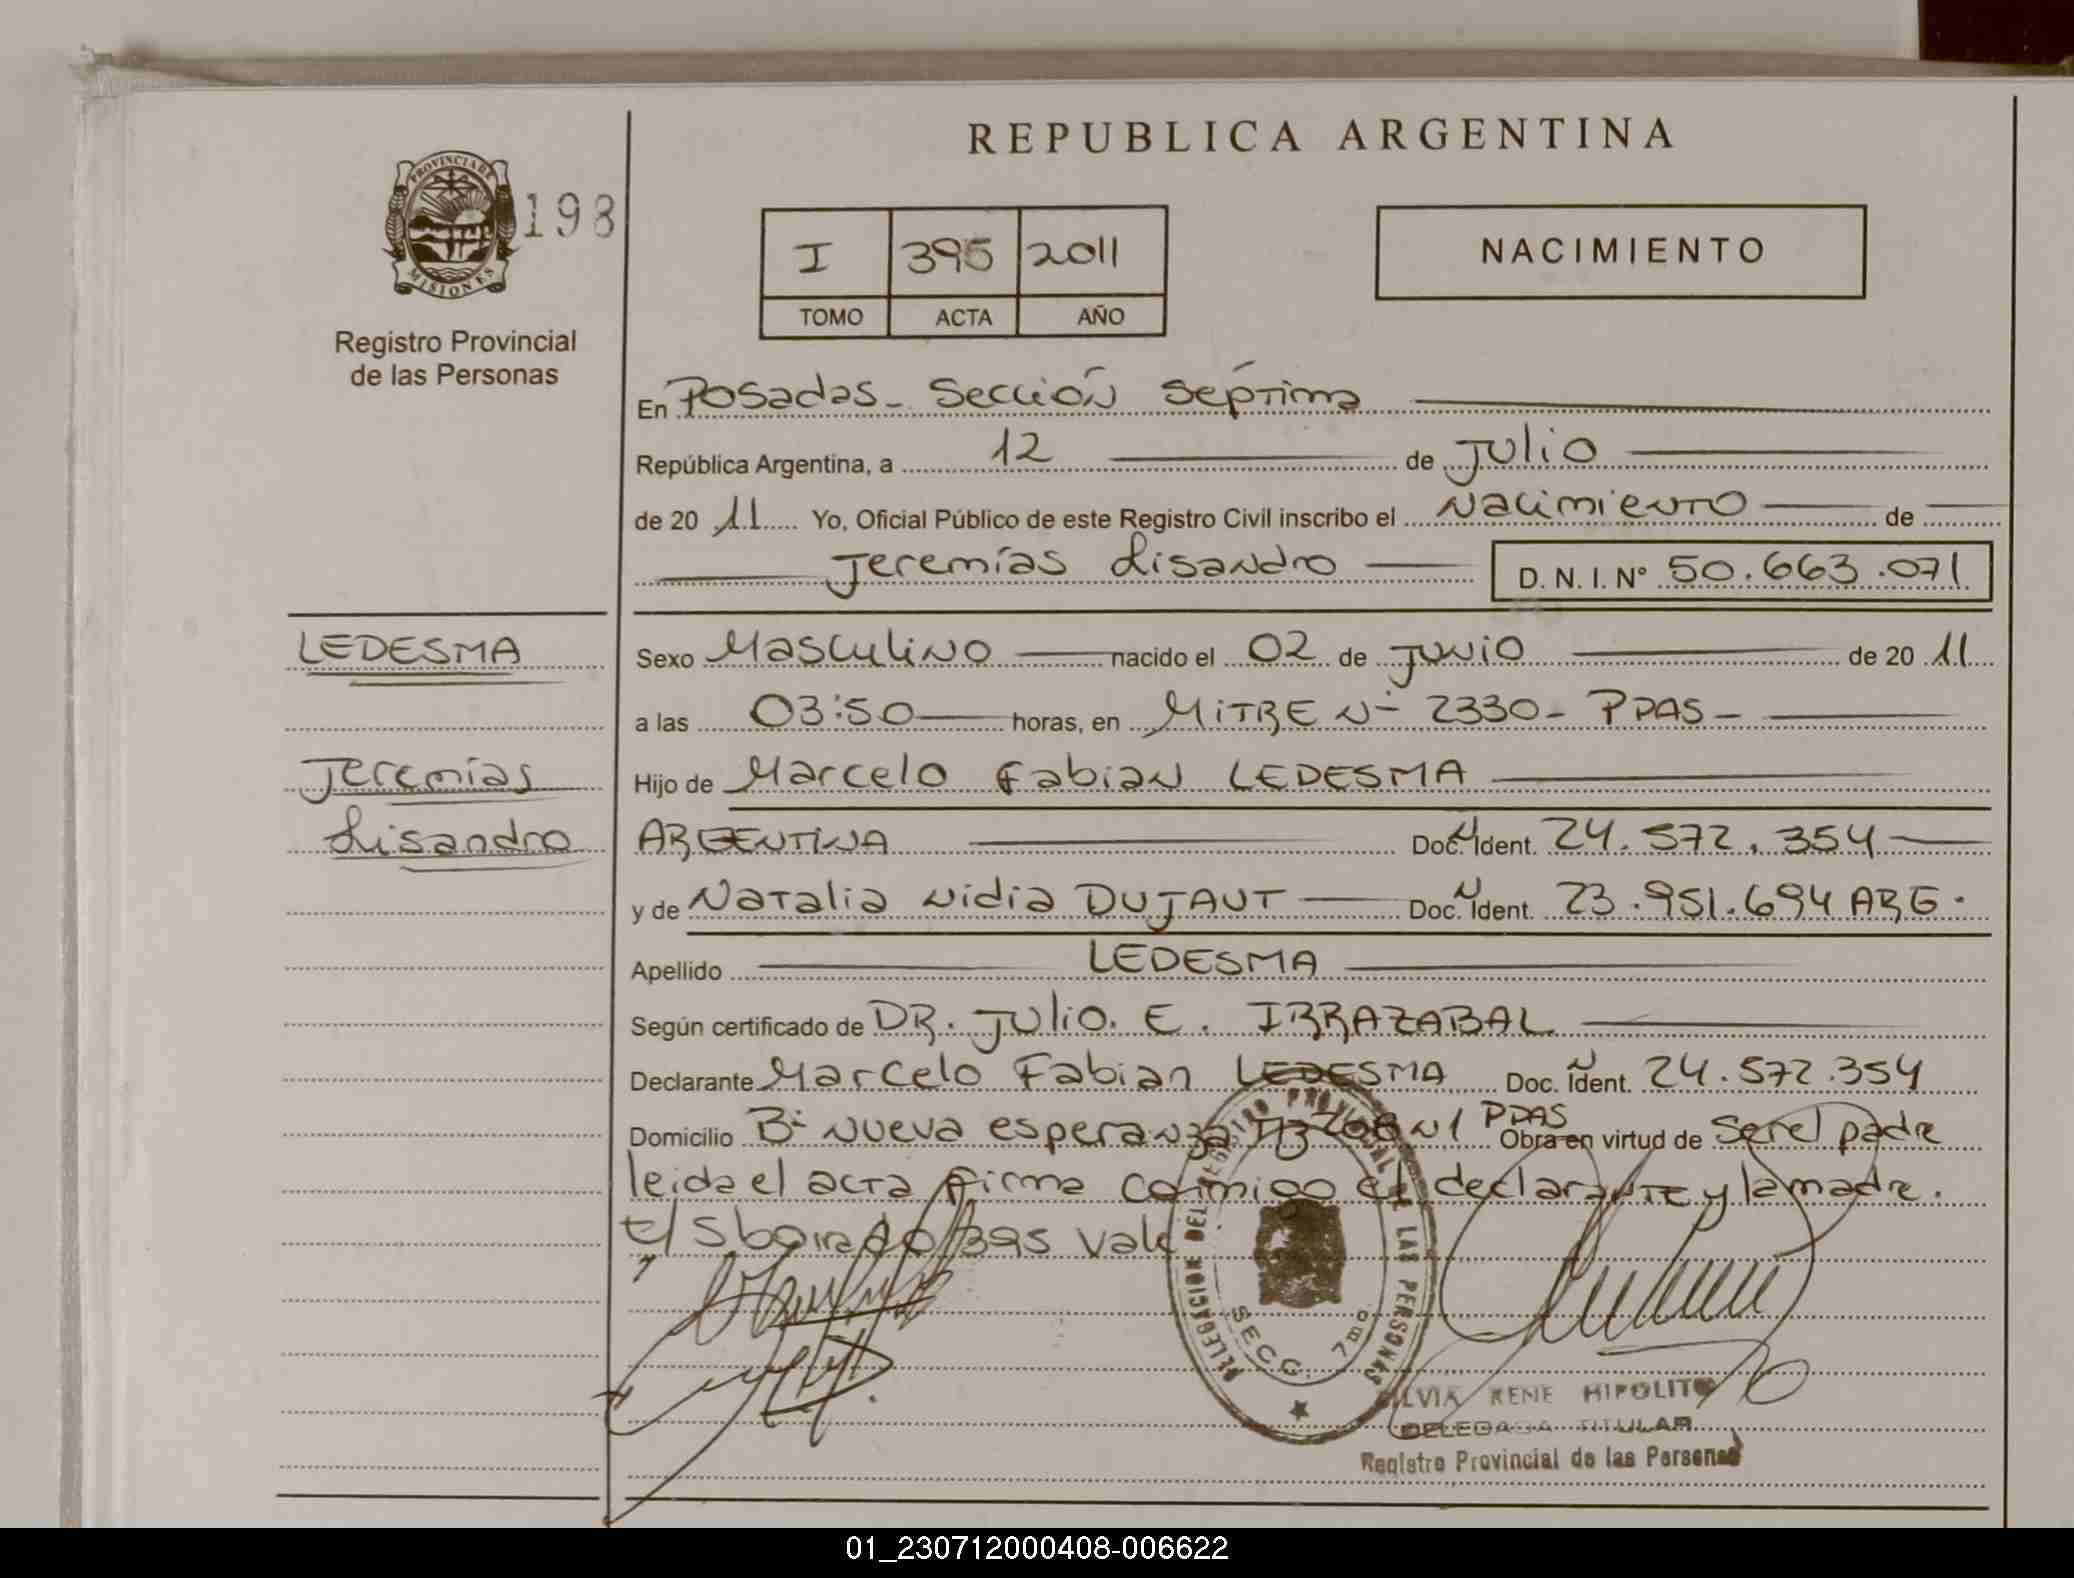 REPUBLICA ARGENTINA
PROVINCIA DE
MISIONES
198
Registro Provincial
de las Personas
I 395 2011
TOMO ACTA AÑO
NACIMIENTO
En Posadas - Sección Séptima
República Argentina, a 12 de Julio
de 20 11 Yo, Oficial Público de este Registro Civil inscribo el Nacimiento de
Jeremías Lisandro D. N. I. Nº 50.663.071
LEDESMA
Jeremías
Lisandro
Sexo Masculino nacido el 02 de Junio de 20 11
a las 03:50 horas, en MITRE Nº 2330 - PDAS -
Hijo de Marcelo Fabian LEDESMA
ARGENTINA Doc. Ident. 24.572.354
y de Natalia Nidia DUJAUT Doc. Ident. 23.951.694 ARG.
Apellido LEDESMA
Según certificado de DR. Julio. E. IRRAZABAL
Declarante Marcelo Fabian LEDESMA Doc. Ident. 24.572.354
Domicilio Bº Nueva esperanza PDAS Obra en virtud de ser el padre
leida el acta firma conmigo el declarante y la madre.
395 Vale
DELEGACION DEL REGISTRO PROVINCIAL DE LAS PERSONAS
SECC. 7ma.
SILVIA RENE HIPOLITO
DELEGADA TITULAR
Registro Provincial de las Personas
01_230712000408-006622